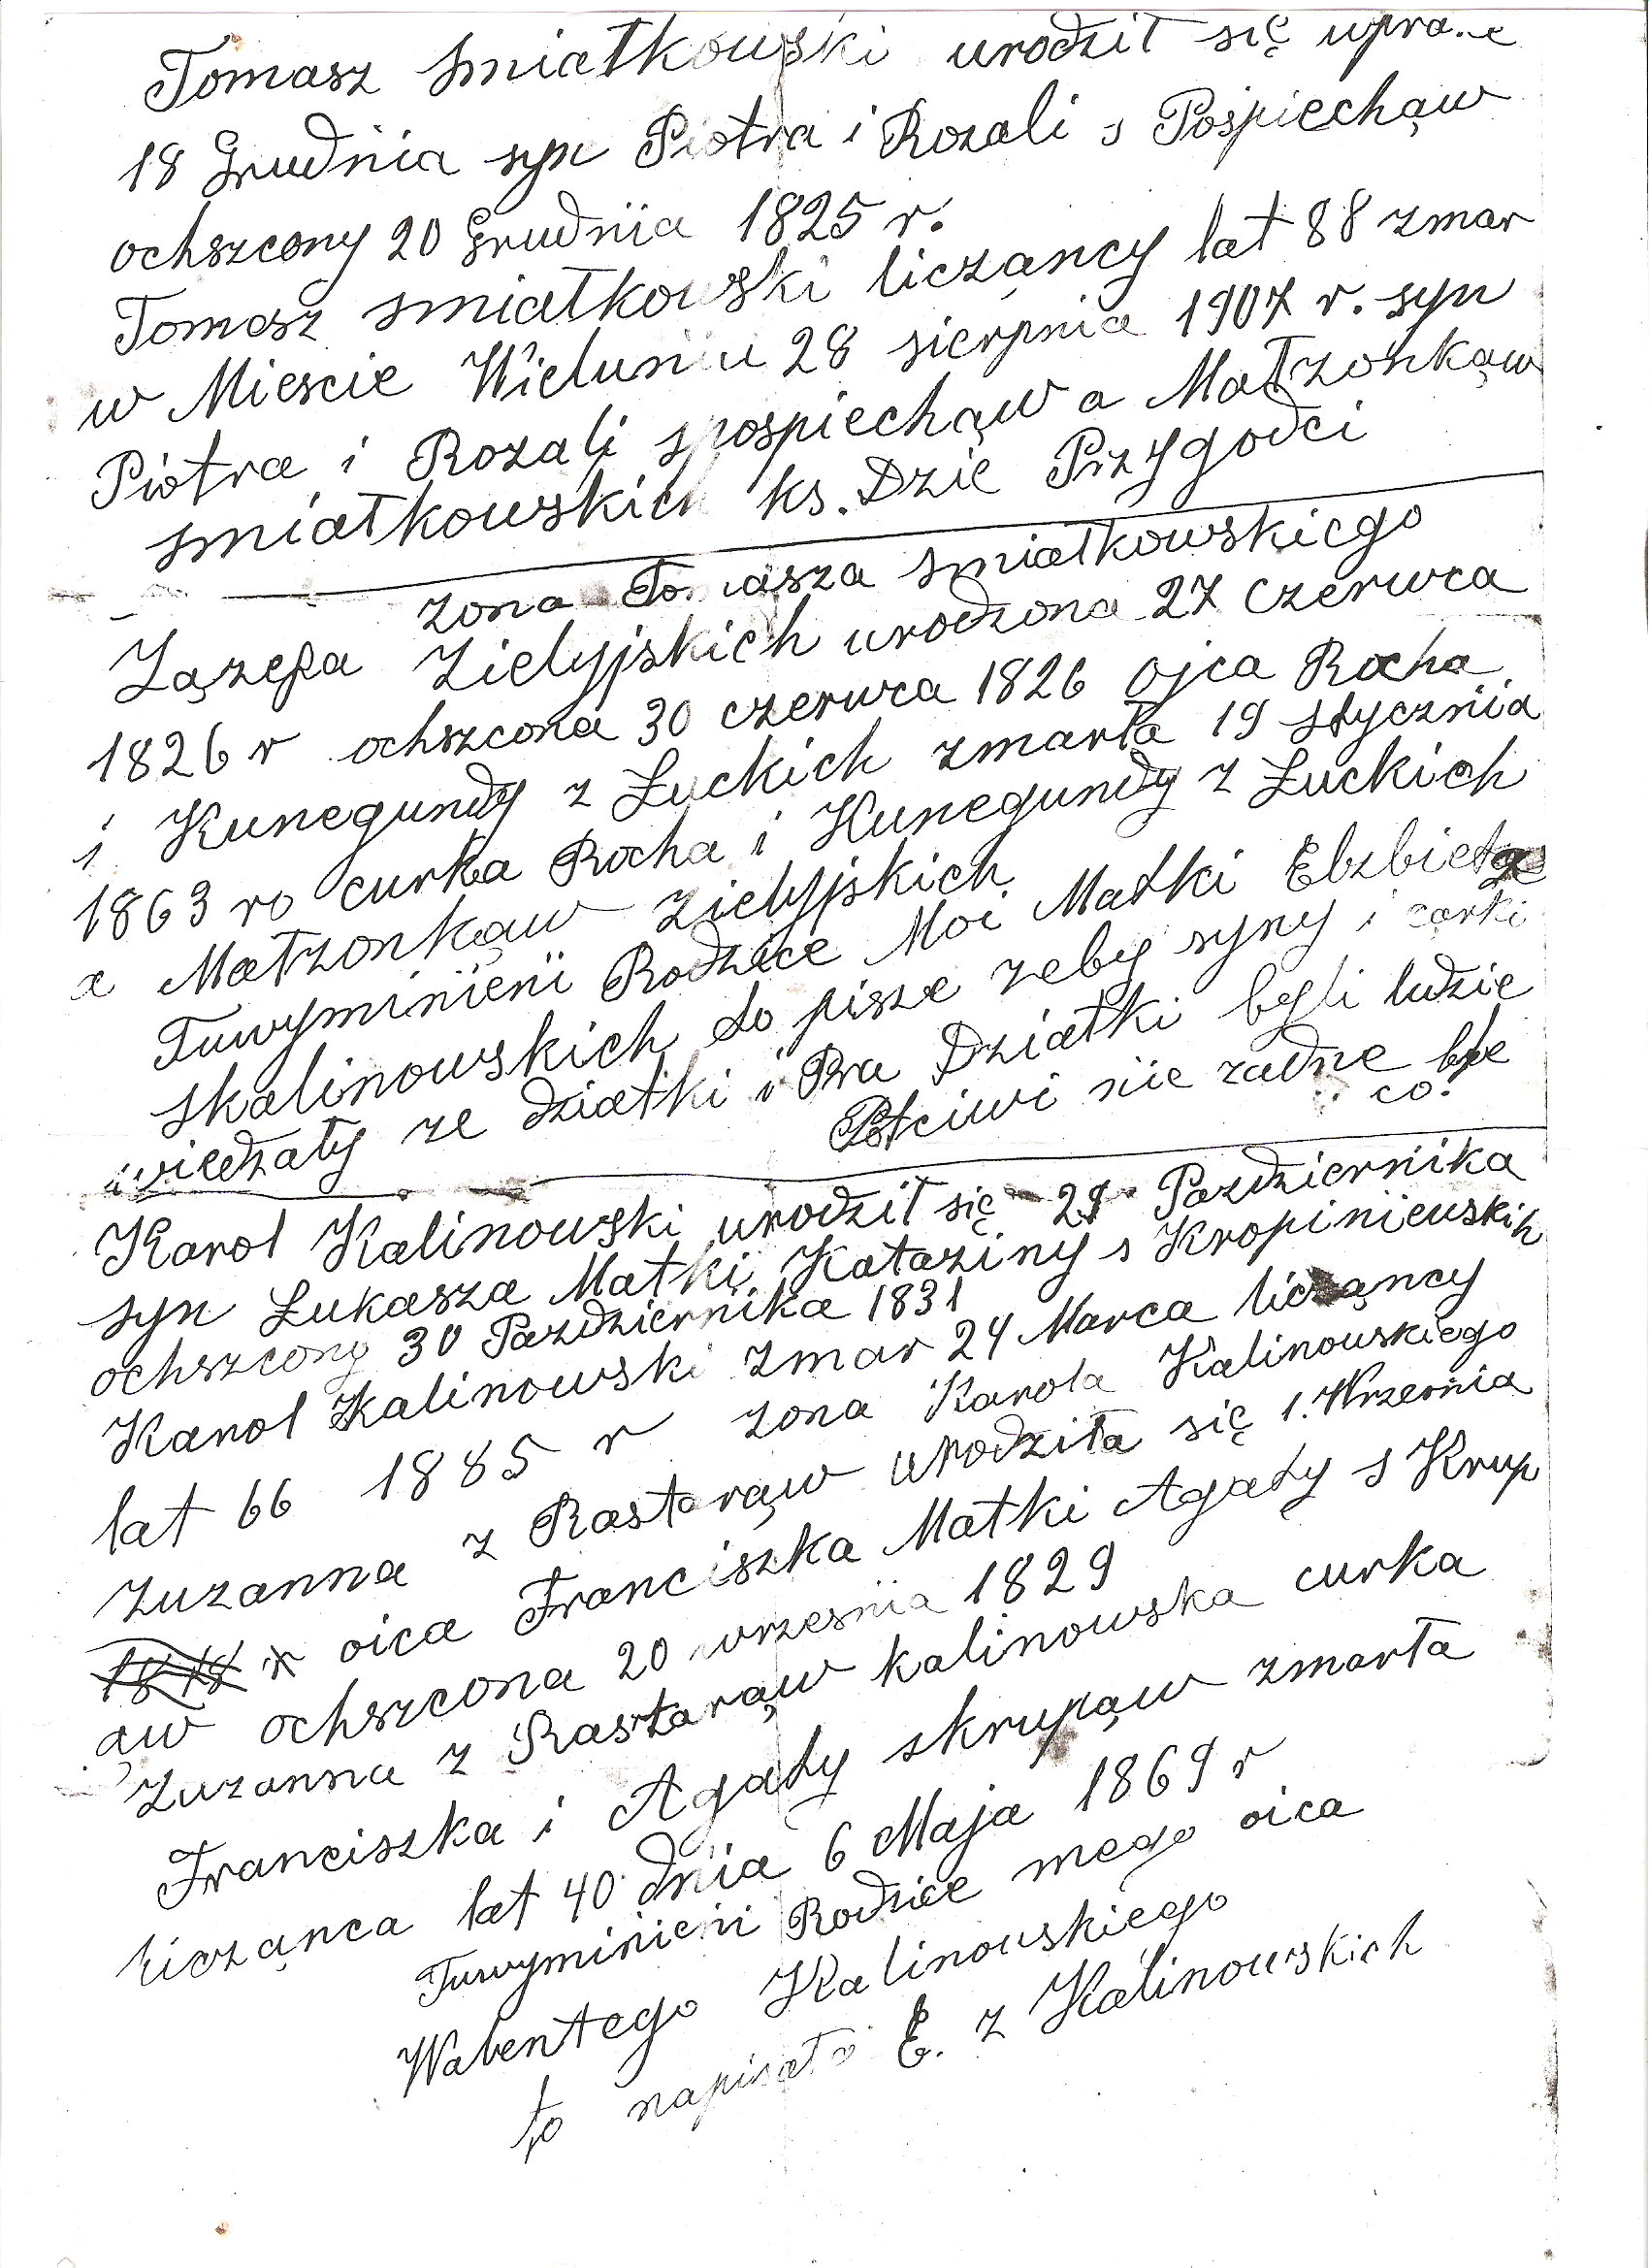 Tomasz Smiałkowski urodził się
18 Grudnia syn Piotra i Rozali s Pośpiechąw
ochszcony 20 Grudnia 1825 r.
Tomasz smiałkowski licząncy lat 88 zmar
w Miescie Wieluniu 28 sierpnia 1907 r. syn
Piotra i Rozali spospiechąw a Małzonkąw
smiałkowskich ks. Dzie Przygodci
zona Tomasza smiałkowskiego
Zielyjskich urodzona 27 czerwca
1826 r ochszcona 30 czerwca 1826 ojca Rocha
i Kunegundy z Łuckich zmarła 19 stycznia
1863 ro curka Rocha i Kunegundy z Łuckich
a Małzonkąw zielyjskich
Tuwyminieni Rodzice Moi Matki Elzbiety
skalinowskich to pisze zeby syny i cąrki
wiedzały ze dziatki i Pra Dziatki byli ludzie
Potciwi nie zadne byle
co.
Karol Kalinowski urodził się Pazdziernika
syn Łukasza Matki Kataziny s Kropiniewskih
ochszcony 30 Pazdziernika 1831
Karol Kalinowski zmar 24 Marca licząncy
lat 66 1885 r zona Karola Kalinowskiego
zuzanna z Rastarąw urodziła się 1. Wrzernia
oica Franciszka Matki Agaty s Krup
ąw ochszcona 20 wrzesnia 1829
zuzanna z Rastarąw kalinowska curka
Franciszka i Agaty skrupąw zmarła
licząnca lat 40 dnia 6 Maja 1869 r
Tuwyminieni Rodzice mego oica
Walentego Kalinowskiego
to napisała E. z Kalinowskich